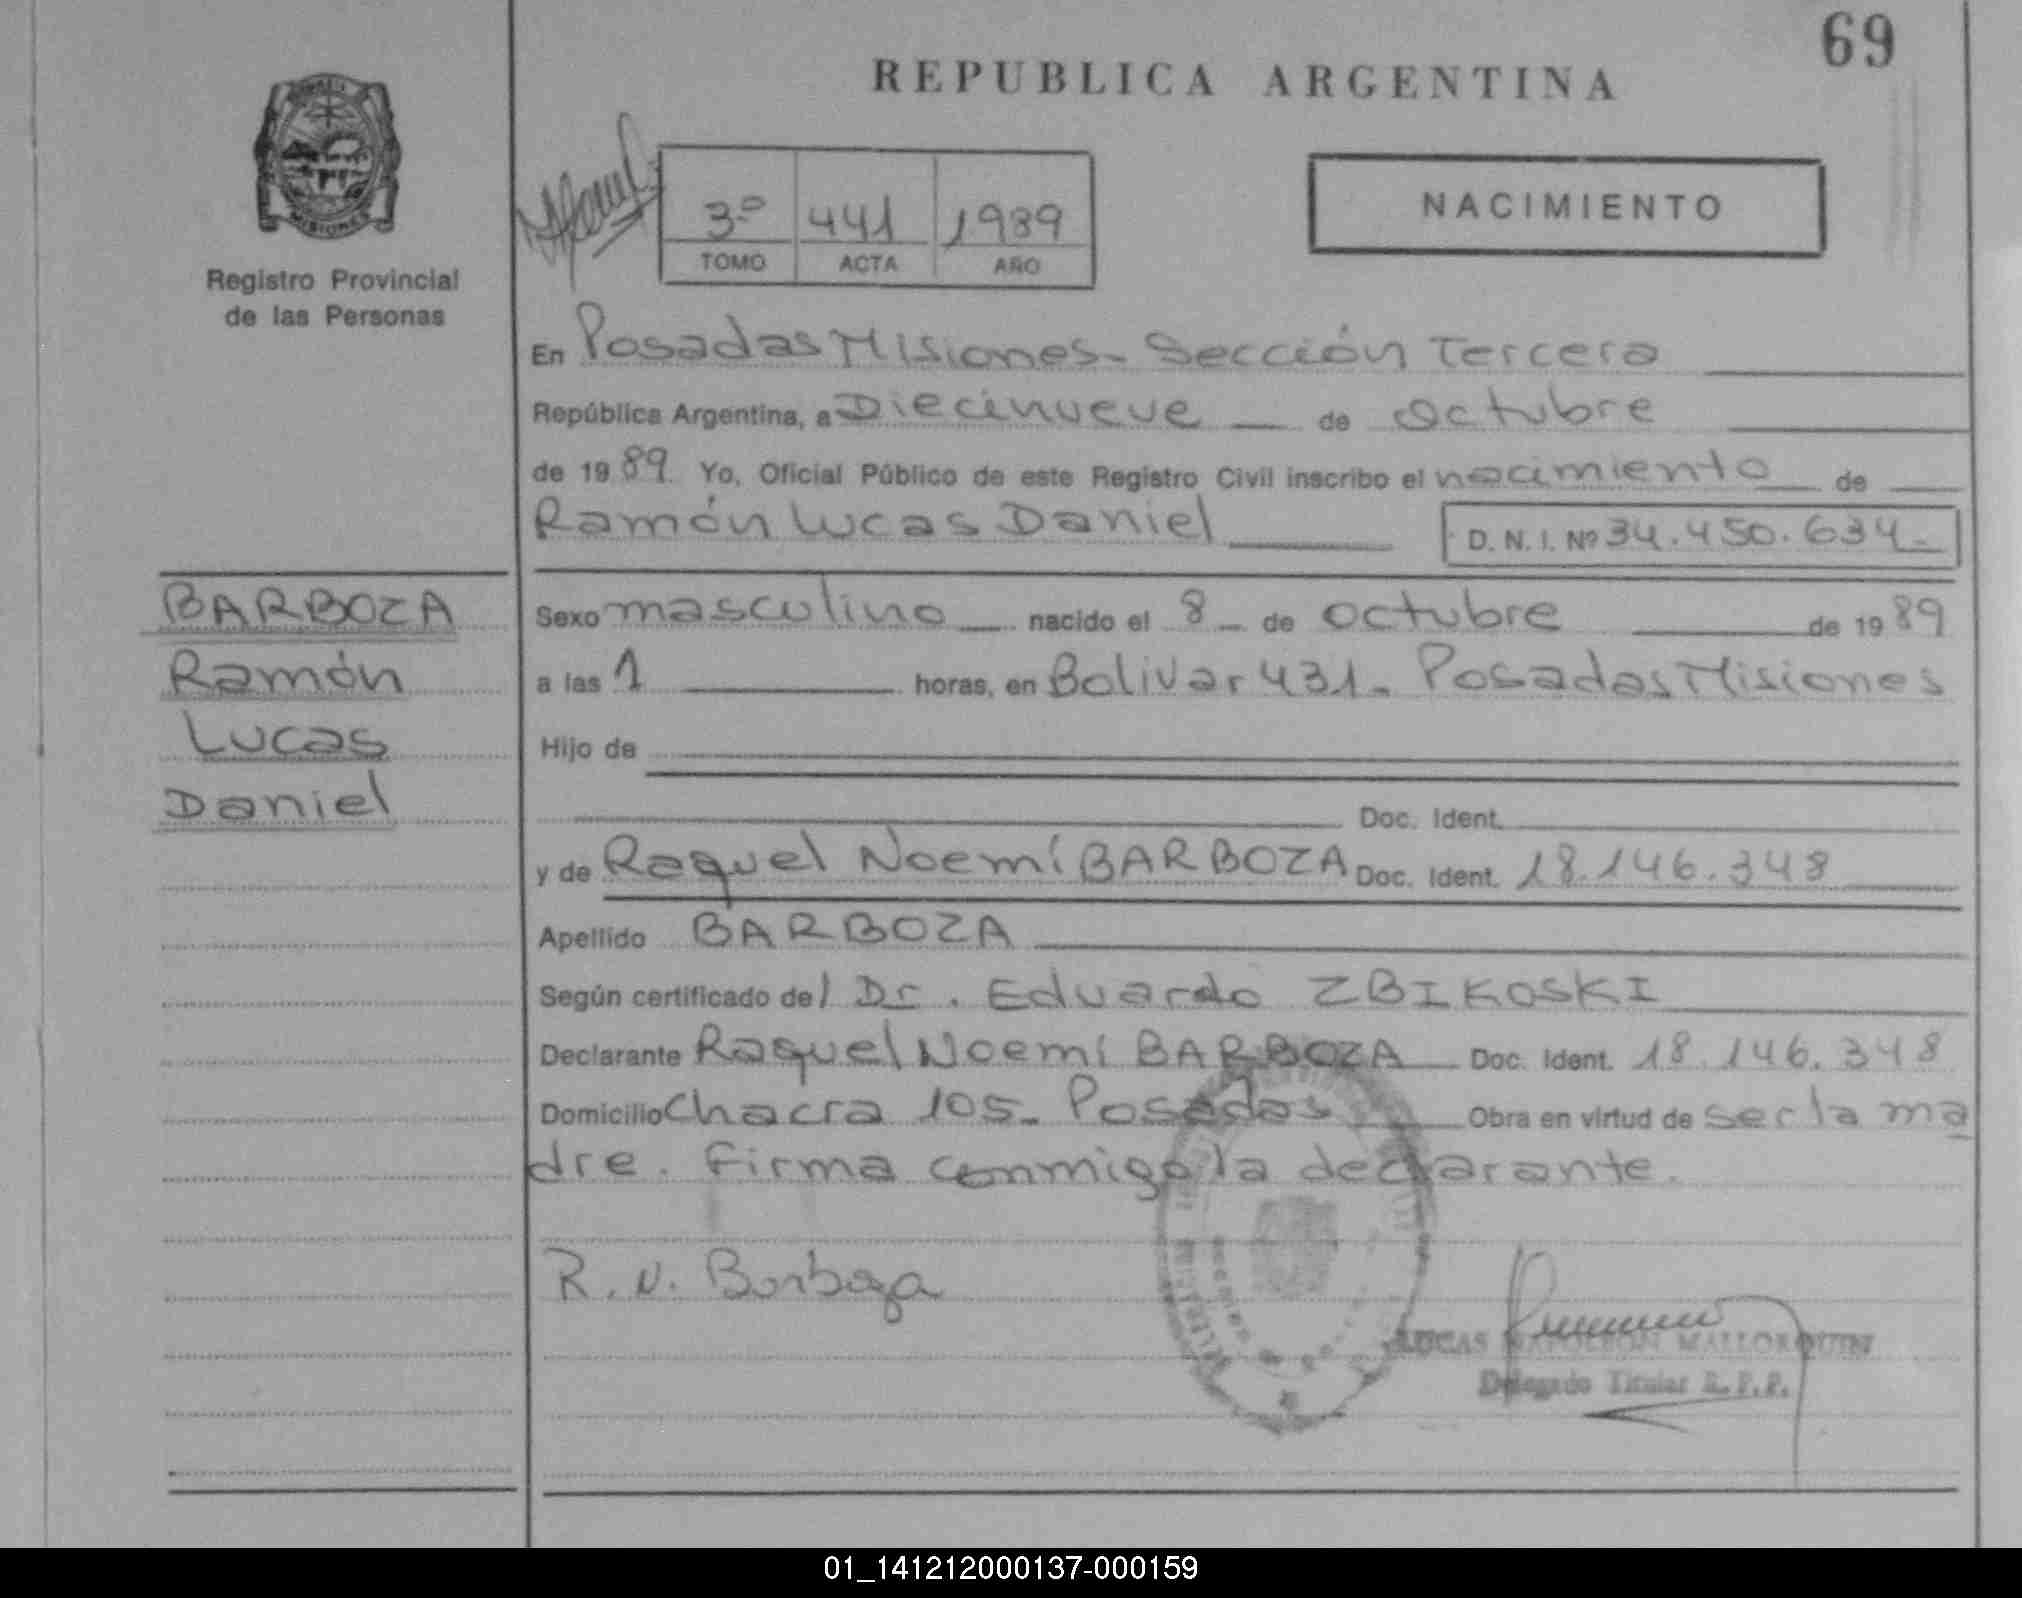 69
REPUBLICA ARGENTINA
MISIONES
Registro Provincial
de las Personas
3º 441 1989
TOMO ACTA AÑO
NACIMIENTO
En Posadas Misiones - Sección Tercera
República Argentina, a Diecinueve de Octubre
de 1989. Yo, Oficial Público de este Registro Civil inscribo el nacimiento de
Ramón Lucas Daniel D. N. I. Nº 34.450.634-
BARBOZA
Ramón
Lucas
Daniel
Sexo masculino nacido el 8 de octubre de 1989
a las 1 horas, en Bolivar 431- Posadas Misiones
Hijo de
Doc. Ident.
y de Raquel Noemí BARBOZA Doc. Ident. 18.146.348
Apellido BARBOZA
Según certificado del Dr. Eduardo ZBIKOSKI
Declarante Raquel Noemí BARBOZA Doc. Ident. 18.146.348
Domicilio Chacra 105- Posadas Obra en virtud de ser la ma
dre. Firma conmigo la declarante.
R. N. Barboza
LUCAS NAPOLEON MALLORQUIN
Delegado Titular R.P.P.
01_141212000137-000159